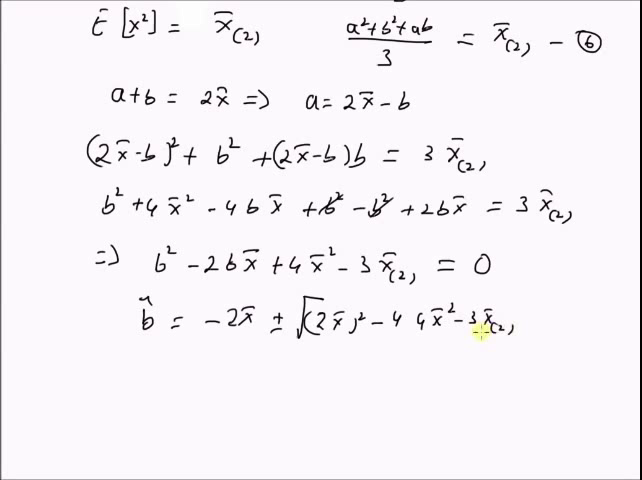 E [x²] = x̄₍₂₎   (a²+b²+ab)/3 = x̄₍₂₎ – ⑥
a+b = 2x̄ => a = 2x̄ – b
(2x̄-b)² + b² + (2x̄-b)b = 3 x̄₍₂₎
b² + 4x̄² - 4bx̄ + b² - b² + 2bx̄ = 3 x̄₍₂₎
=> b² - 2bx̄ + 4x̄² - 3x̄₍₂₎ = 0
b̂ = - 2x̄ ± √(2x̄)² - 4 4x̄² - 3x̄₍₂₎